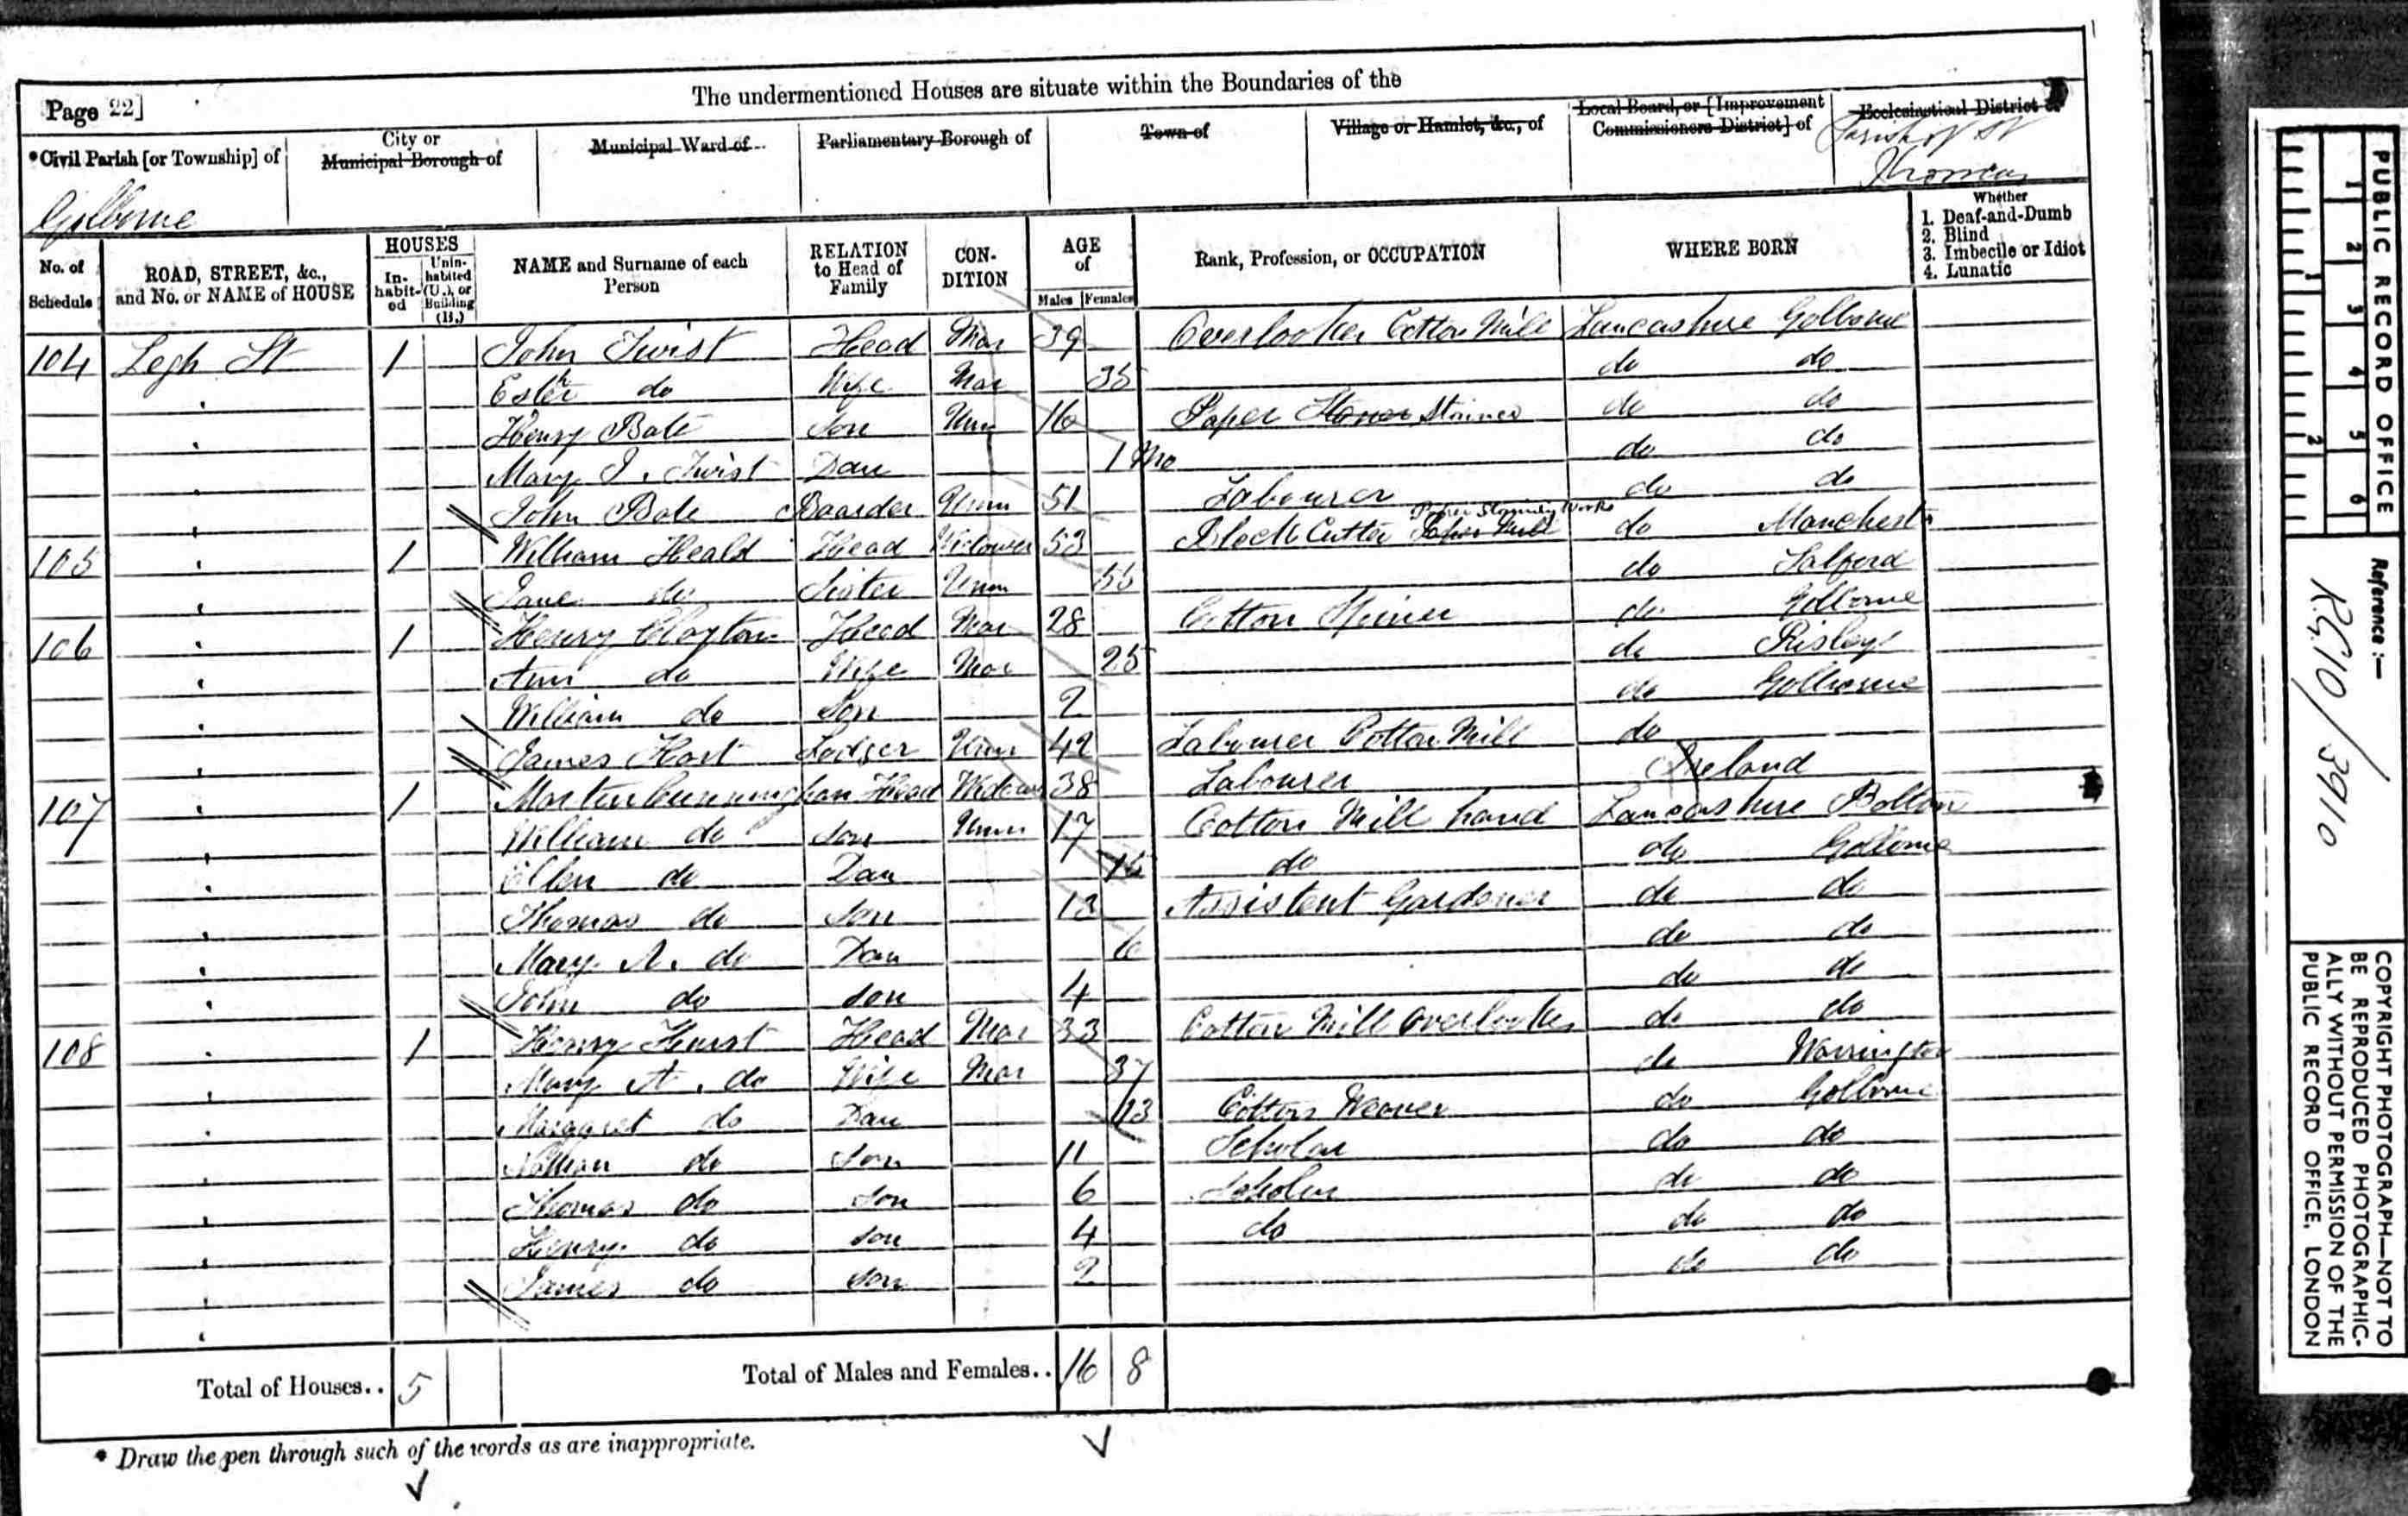 The undermentioned Houses are situate within the Boundaries of the
Page 22]
*Civil Parish [or Township] of
City or Municipal Borough of
Municipal Ward of
Parliamentary Borough of
Town of
Village or Hamlet, &c., of
Local Board, or [Improvement Commissioners District] of
Ecclesiastical District of
Golborne
Parish of St Thomas
No. of Schedule
ROAD, STREET, &c., and No. or NAME of HOUSE
HOUSES
In-habit-ed
Unin-habited (U.), or Building (B.)
NAME and Surname of each Person
RELATION to Head of Family
CON-DITION
AGE of
Males
Females
Rank, Profession, or OCCUPATION
WHERE BORN
Whether
1. Deaf-and-Dumb
2. Blind
3. Imbecile or Idiot
4. Lunatic
104 Legh St 1 John Twist Head Mar 39 Overlooker Cotton Mill Lancashire Golborne
Esther do Wife Mar 35 do do
Henry Bate Son Unm 16 Paper Stainer do do
Mary J. Twist Dau 1 Mo do do
John Bate Boarder Unm 51 Labourer do do
105 1 William Heald Head Widower 53 Block Cutter Paper Mill Paper Staining Works do Manchester
Jane do Sister Unm 55 do Salford
106 1 Henry Clayton Head Mar 28 Cotton Spiner do Golborne
Ann do Wife Mar 25 do Risley
William do Son 2 do Golborne
James Hart Lodger Unm 42 Labourer Cotton Mill do
107 1 Martin Cunningham Head Widower 38 Labourer Ireland
William do Son Unm 17 Cotton Mill hand Lancashire Bolton
Ellen do Dau 15 do do Golborne
Thomas do Son 13 Assistent Gardener do do
Mary A. do Dau 6 do do
John do Son 4 do do
108 1 Henry Hurst Head Mar 33 Cotton Mill Overlooker do do
Mary A. do Wife Mar 37 do Warrington
Margaret do Dau 13 Cotton Weaver do Golborne
do Son 11 Scholar do do
Thomas do Son 6 Scholar do do
Henry do Son 4 do do do
James do Son 2 do do
Total of Houses.. 5 Total of Males and Females.. 16 8
* Draw the pen through such of the words as are inappropriate.
PUBLIC RECORD OFFICE
1 2 3 4 5 6
1 2
Reference :-
R.G.10/3910
COPYRIGHT PHOTOGRAPH—NOT TO
BE REPRODUCED PHOTOGRAPHIC-
ALLY WITHOUT PERMISSION OF THE
PUBLIC RECORD OFFICE, LONDON